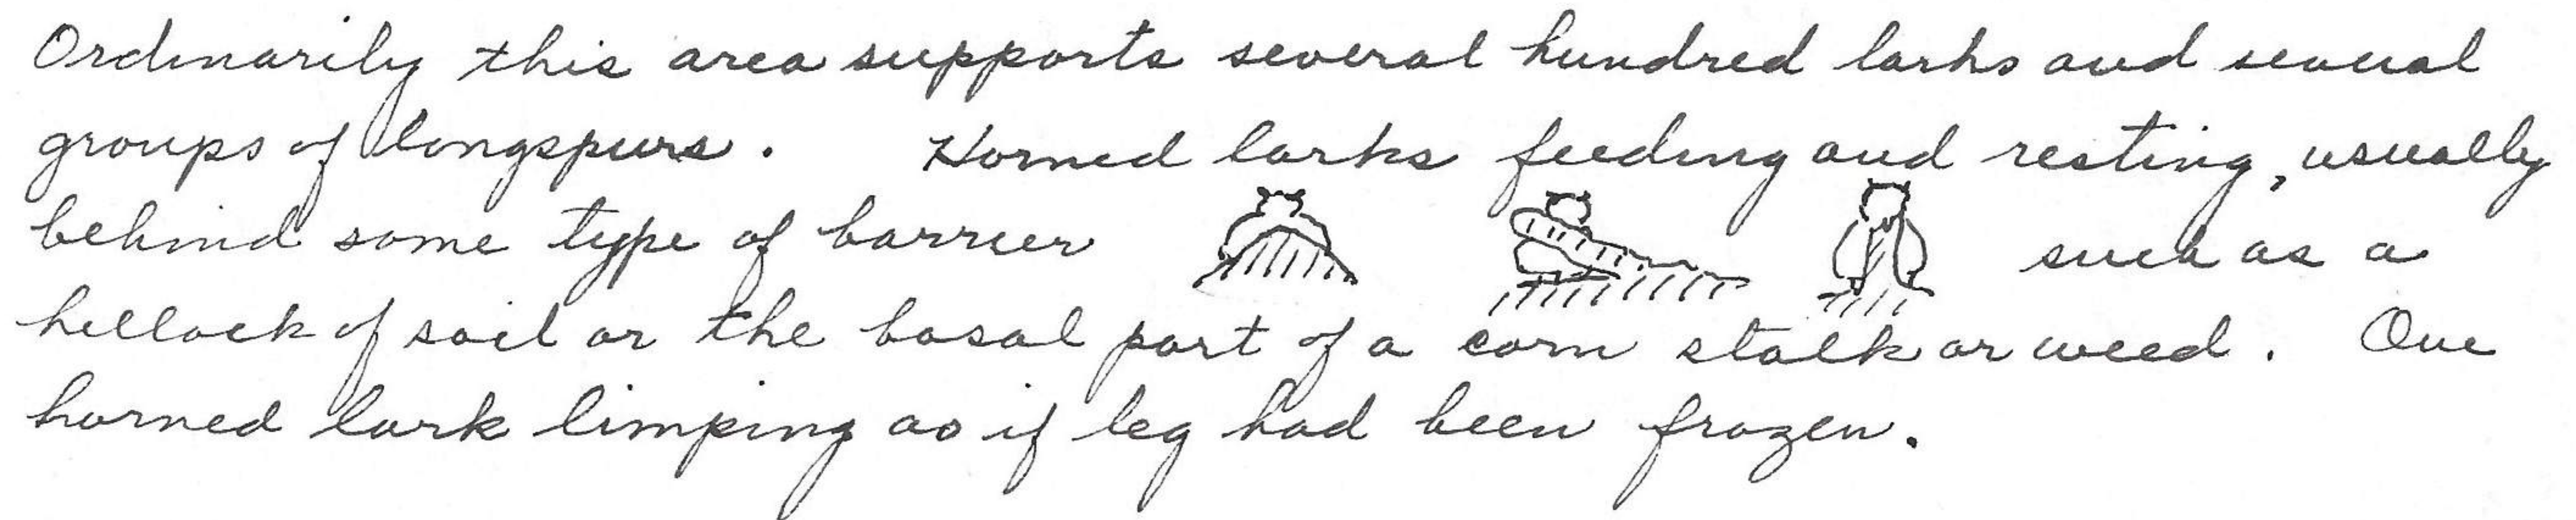 Ordinarily this area supports several hundred larks and several
groups of longspurs. Horned larks feeding and resting, usually
behind some type of barrier such as a
hillock of soil or the basal part of a corn stalk or weed. One
horned lark limping as if leg had been frozen.